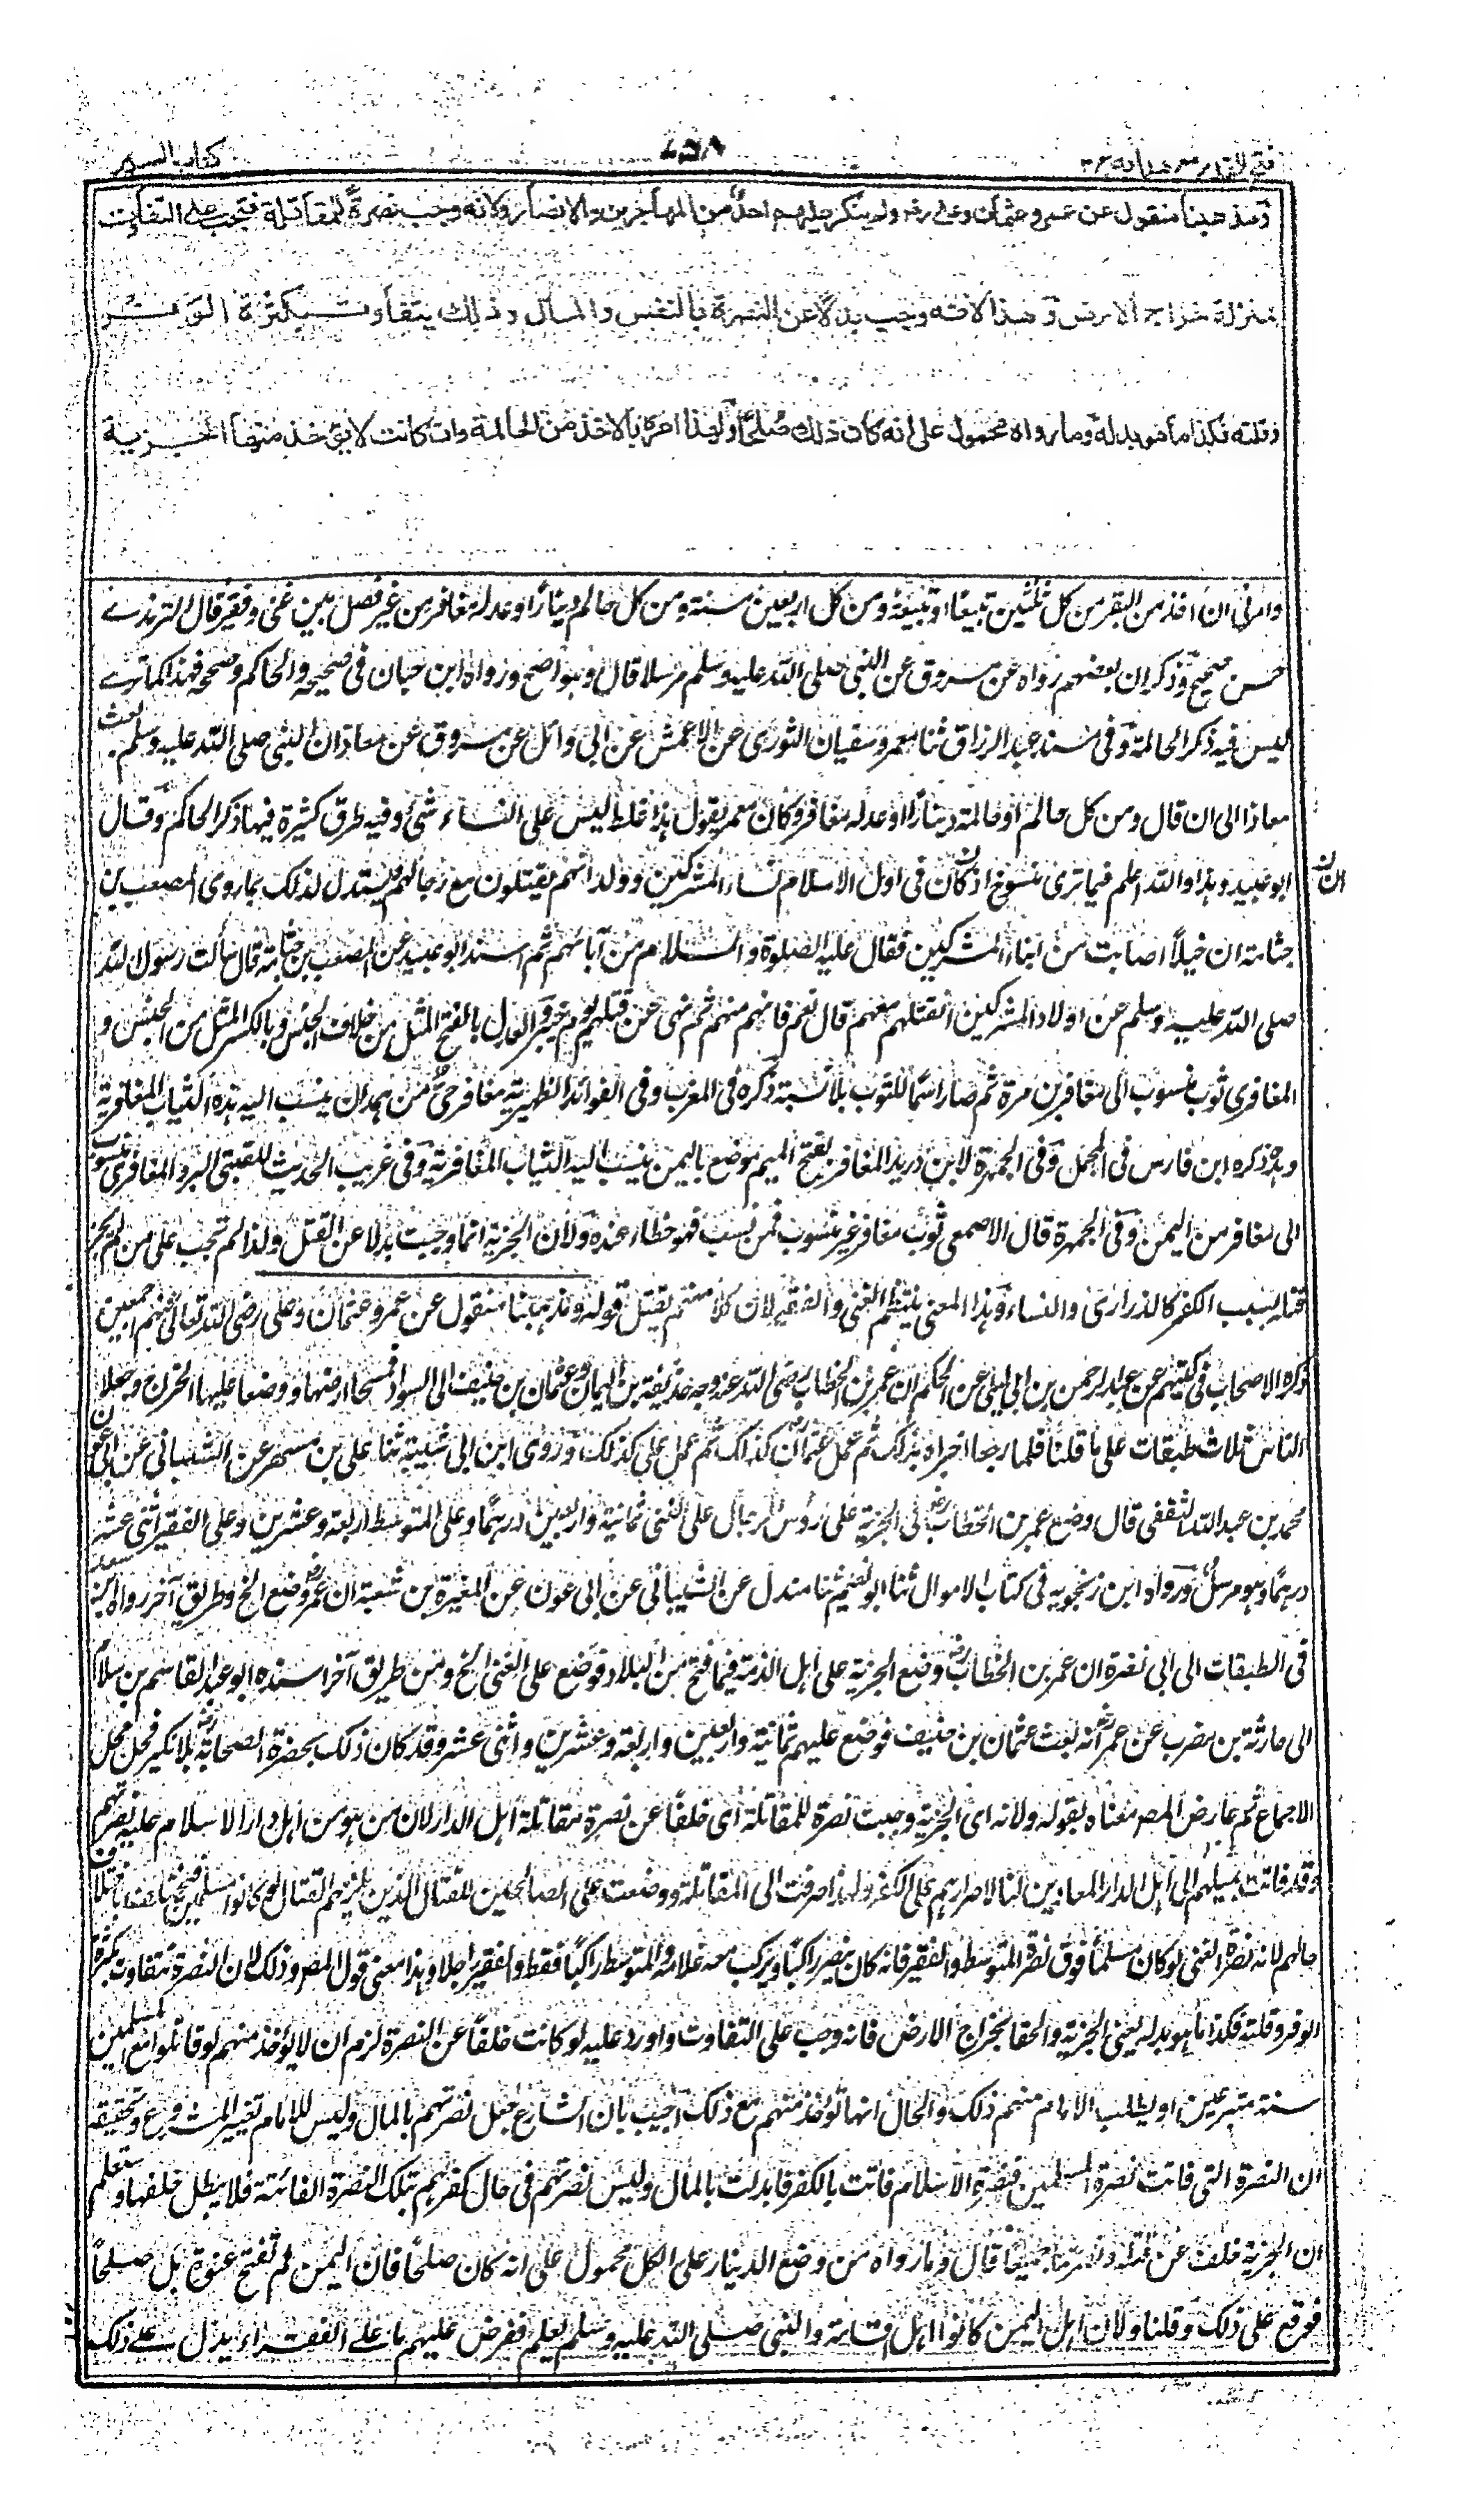 فتح القدير مع هدايه ج ٢
٧٥٨
كتاب السير
ومذهبنا منقول عن عمر وعثمان وعلى رض ولم ينكر عليهم احد من المهاجرين والانصار ولانه وجب نصرةً للمقاتلة فتجب على التفاوت
بمنزلة خراج الارض وهذا لانه وجب بدلاً عن النصرة بالنفس والمال وذلك يتفاوت بكثرة الوفر
وقلته فكذا ما هو بدله وما رواه محمول على انه كان ذلك صلحًا ولهذا امره بالاخذ من الحالمة وان كانت لا يؤخذ منها الجزية
وامرنى ان آخذ من البقر من كل ثلثين تبيعا او تبيعة ومن كل اربعين مسنة ومن كل حالم دينارًا او عدله معافر من غير فصل بين غنى وفقير قال الترمذے
حسن صحيح وذكر ان بعضهم رواه عن مسروق عن النبى صلى الله عليه وسلم مرسلا قال وهو اصح ورواه ابن حبان فى صحيحه والحاكم وصححه فهذا كما ترے
ليس فيه ذكر الحالمة وفى مسند عبد الرزاق ثنا معمر وسفيان الثورى عن الاعمش عن ابى وائل عن مسروق عن معاذ ان النبى صلى الله عليه وسلم بعث
معاذا الى ان قال ومن كل حالم او حالمة دينارًا او عدله معافر وكان معمر يقول هذا غلط ليس على النساء شئ وفيه طرق كثيرة فيها ذكر الحاكم وقال
ابو عبيد وهذا والله اعلم فيما ترى منسوخ اذ كان فى اول الاسلام نساء المشركين وولدانهم يقتلون مع رجالهم ويستدل لذلك بما روى الصعب بن
جثامة ان خيلاً اصابت من ابناء المشركين فقال عليه الصلوة والسلام من آبائهم ثم اسند ابو عبيد عن الصعب بن جثامة قال سألت رسول الله
صلى الله عليه وسلم عن اولاد المشركين انقتلهم معهم قال نعم فانهم منهم ثم نهى عن قتلهم يوم خيبر والعدل بالفتح المثل من خلاف الجنس وبالكسر المثل من الجنس و
المعافرى ثوب منسوب الى معافر بن مرة ثم صار اسمًا للثوب بلا نسبة ذكره فى المغرب وفى الفوائد الظهيرية معافر حى من همدان ينسب اليه هذه الثياب المعافرية
وهو ذكره ابن فارس فى المجمل وفى الجمهرة لابن دريد المعافر بفتح الميم موضع باليمن ينسب اليه الثياب المعافرية وفى غريب الحديث للقتبى البرد المعافرى منسوب
الى معافر من اليمن وفى الجمهرة قال الاصمعى ثوب معافر غير منسوب فمن نسب فهو خطاء عنده ولان الجزية انما وجبت بدلا عن القتل ولذا لم تجب على من لم يجز
قتله بسبب الكفر كالذرارى والنساء وهذا المعنى ينتظم الغنى والفقير لان كلا منهم يقتل قوله ومذهبنا منقول عن عمر وعثمان وعلى رضى الله تعالى عنهم اجمعين
ذكره الاصحاب فى كتبهم عن عبد الرحمن بن ابى ليلى عن الحكم ان عمر بن الخطاب رضى الله عنه وجه حذيفة بن اليمان وعثمان بن حنيف الى السواد فمسحا ارضها ووضعا عليها الخراج وجعلا
الناس ثلاث طبقات على ما قلنا فلما رجعا اخبراه بذلك ثم عمل عثمان كذلك ثم عمل على كذلك وروى ابن ابى شيبة ثنا على بن مسهر عن الشيبانى عن ابى عون
محمد بن عبد الله الثقفى قال وضع عمر بن الخطاب رض فى الجزية على رؤس الرجال على الغنى ثمانية واربعين درهمًا وعلى المتوسط اربعة وعشرين وعلى الفقير اثنى عشر
درهمًا وهو مرسل ورواه ابن زنجويه فى كتاب الاموال ثنا ابو نعيم ثنا مندل عن الشيبانى عن ابى عون عن المغيرة بن شعبة ان عمر رض وضع الخ وطريق آخر رواه ابن سعد
فى الطبقات الى ابى نضرة ان عمر بن الخطاب رض وضع الجزية على اهل الذمة فيما فتح من البلاد فوضع على الغنى الخ ومن طريق آخر اسنده ابو عبيد القاسم بن سلام
الى حارثة بن مضرب عن عمر رض انه بعث عثمان بن حنيف فوضع عليهم ثمانية واربعين واربعة وعشرين واثنى عشر وقد كان ذلك بحضرة الصحابة رض بلا نكير فحل محل
الاجماع ثم عارض المص معناه بقوله ولانه اى الجزية وجبت نصرة للمقاتلة اى خلفًا عن نصرة مقاتلة اهل الدار لان من هو من اهل دار الاسلام عليه نصرتهم
وقد فاتت بميلهم الى اهل الدار المعادين لنا لاصرارهم على الكفر ولهذا صرفت الى المقاتلة ووضعت على الصالحين للقتال الذين يلزمهم القتال لو كانوا مسلمين فتختلف باختلاف
حالهم لانه نصرة الغنى لو كان مسلمًا فوق نصرة المتوسط والفقير فانه كان ينصر راكبًا ويركب معه غلامه والمتوسط راكبًا فقط والفقير راجلا وهذا معنى قول المص وذلك لان النصرة تتفاوت بكثرة
الوفر وقلته فكذا ما هو بدله يعنى الجزية والحقا بخراج الارض فانه وجب على التفاوت واورد عليه لو كانت خلفًا عن النصرة لزم ان لا يؤخذ منهم لو قاتلوا مع المسلمين
سنة متبرعين او يطلب الامام منهم ذلك والحال انها تؤخذ منهم مع ذلك اجيب بان الشارع جعل نصرتهم بالمال وليس للامام تغيير المشروع وتحقيقه
ان النصرة التى فاتت نصرة المسلمين فنصرة الاسلام فاتت بالكفر فابدلت بالمال وليس نصرتهم فى حال كفرهم تلك النصرة الفائتة فلا يبطل خلفها وستعلم
ان الجزية خلف عن قتلهم ونصرتنا جميعًا قال وما رواه من وضع الدينار على الكل محمول على انه كان صلحًا فان اليمن لم تفتح عنوة بل صلحًا
فوقع على ذلك وقلنا ولان اهل اليمن كانوا اهل فاقة والنبى صلى الله عليه وسلم يعلم ففرض عليهم ما على الفقراء يدل على ذلك